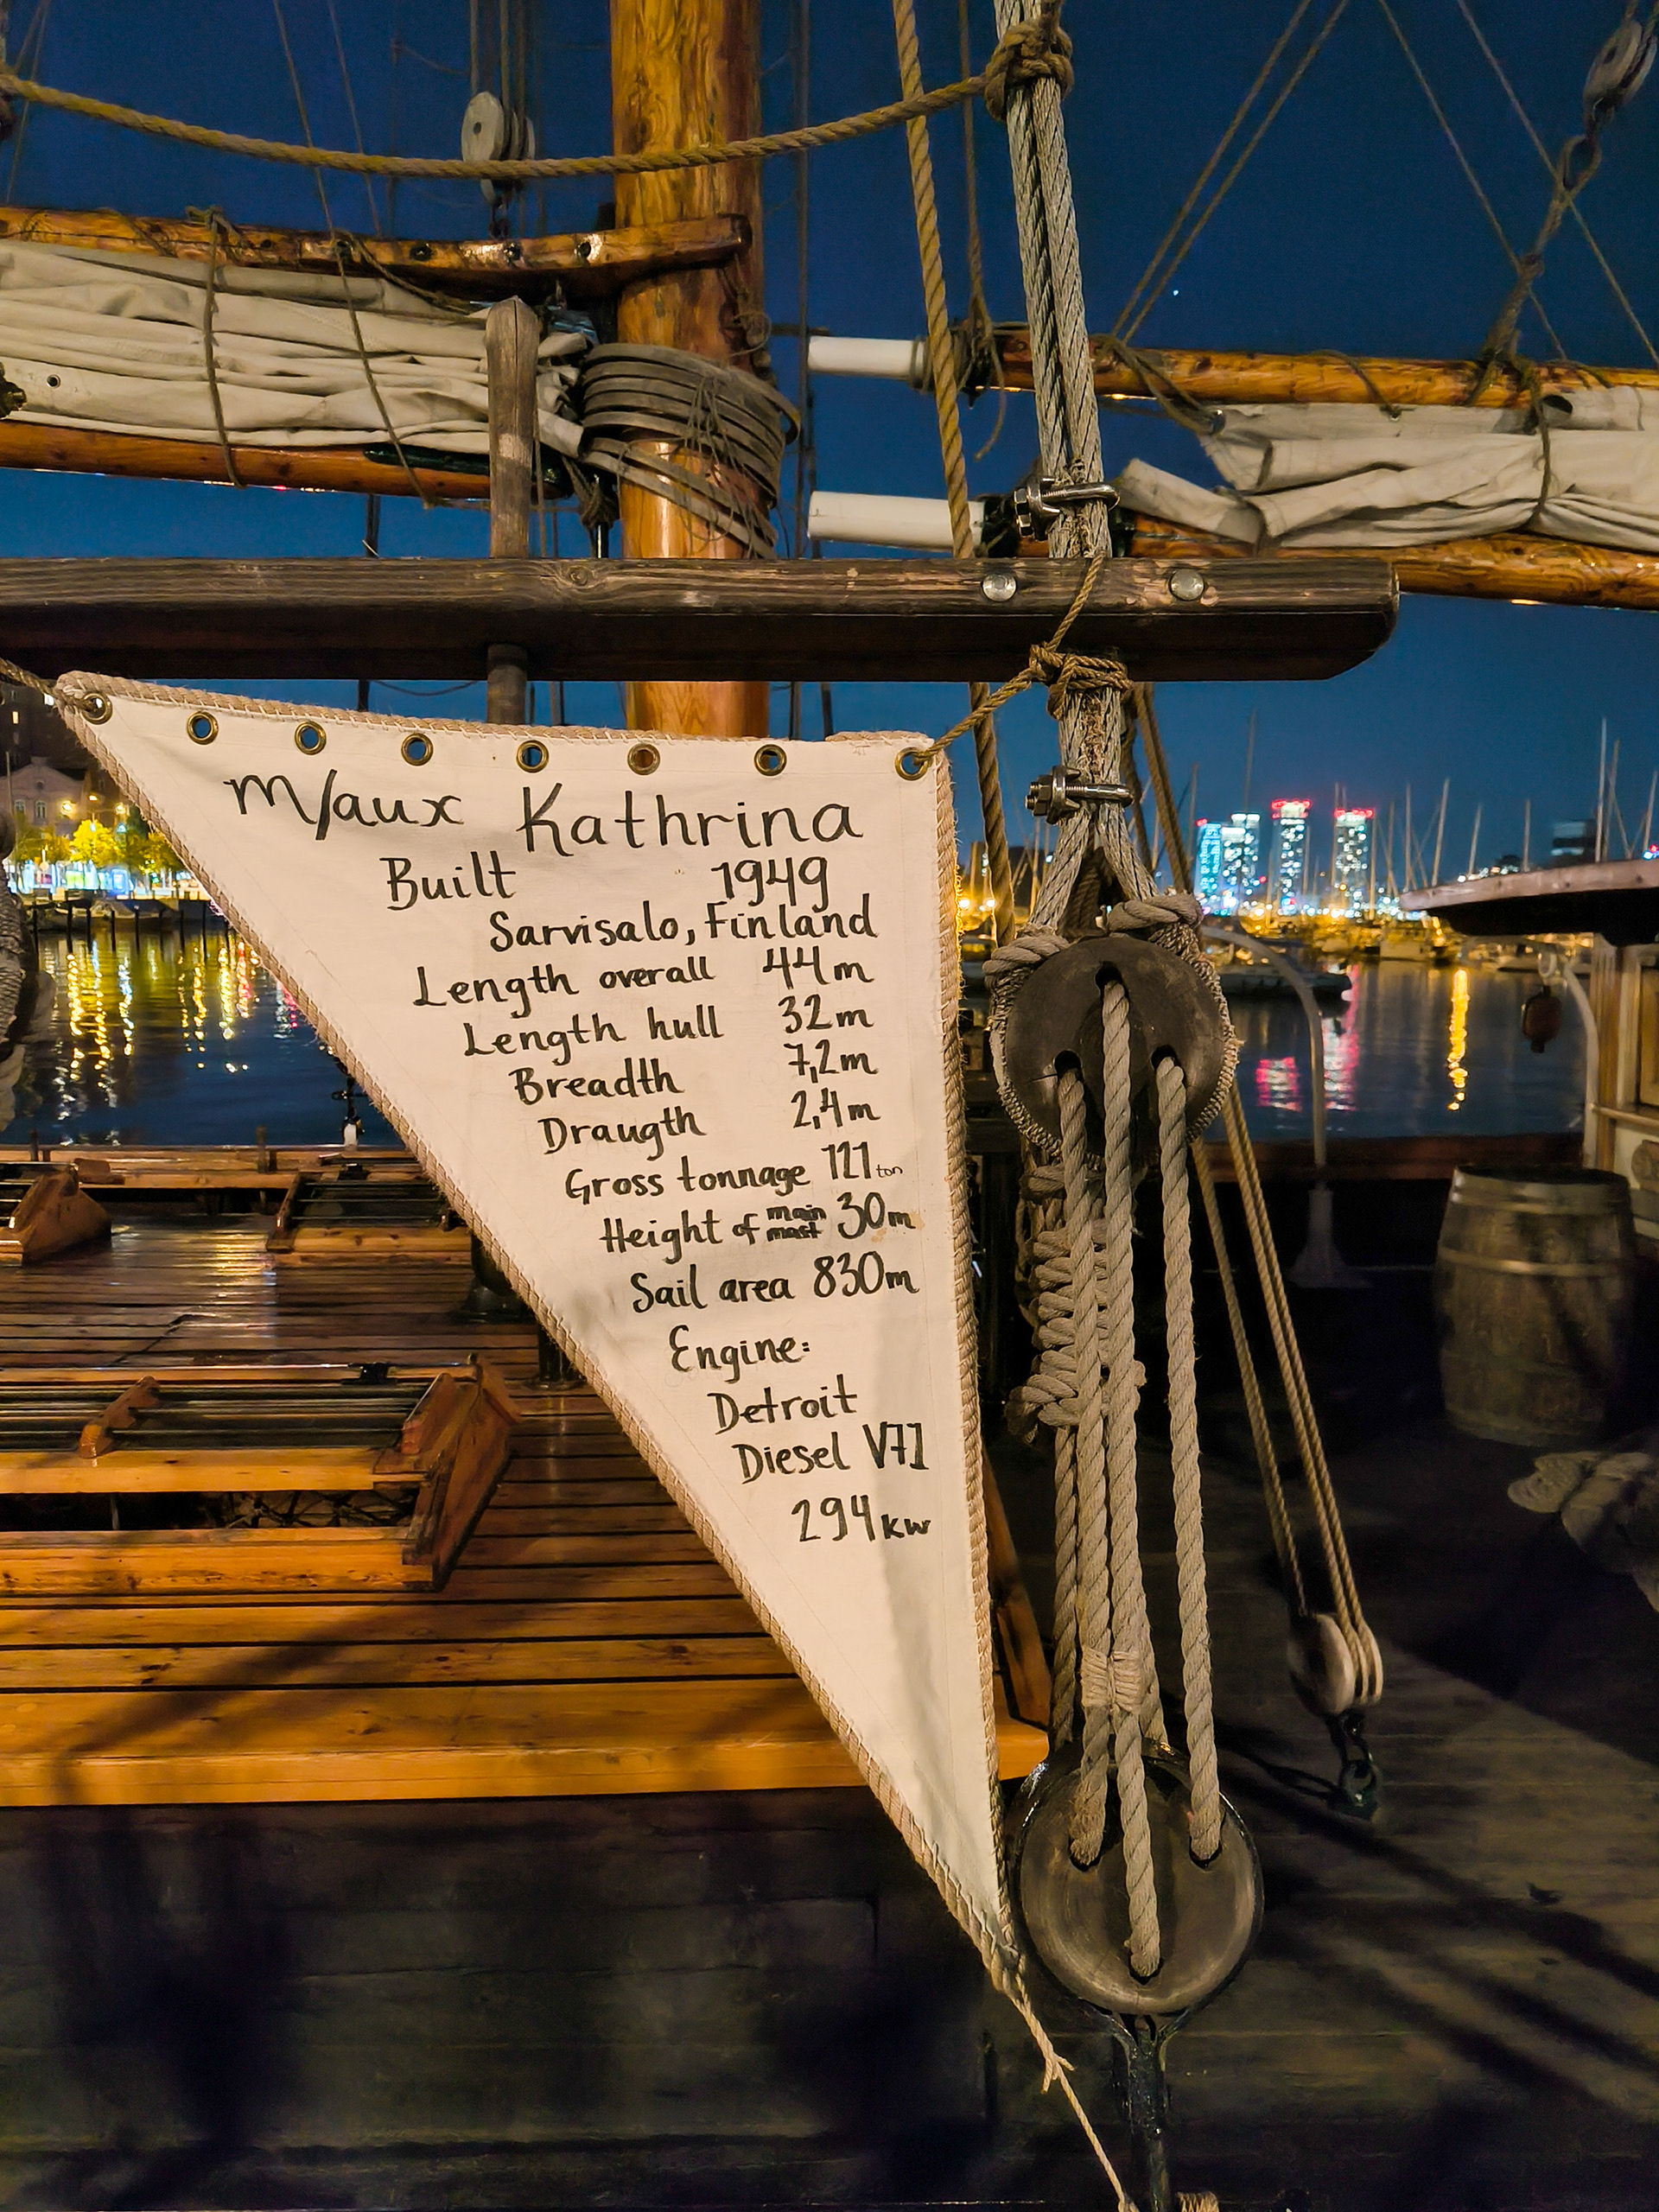 m/aux Kathrina
Built 1949
Sarvisalo, Finland
Length overall 44m
Length hull 32m
Breadth 7,2m
Draugth 2,4m
Gross tonnage 121 ton
Height of main mast 30m
Sail area 830m
Engine:
Detroit
Diesel V71
294kw